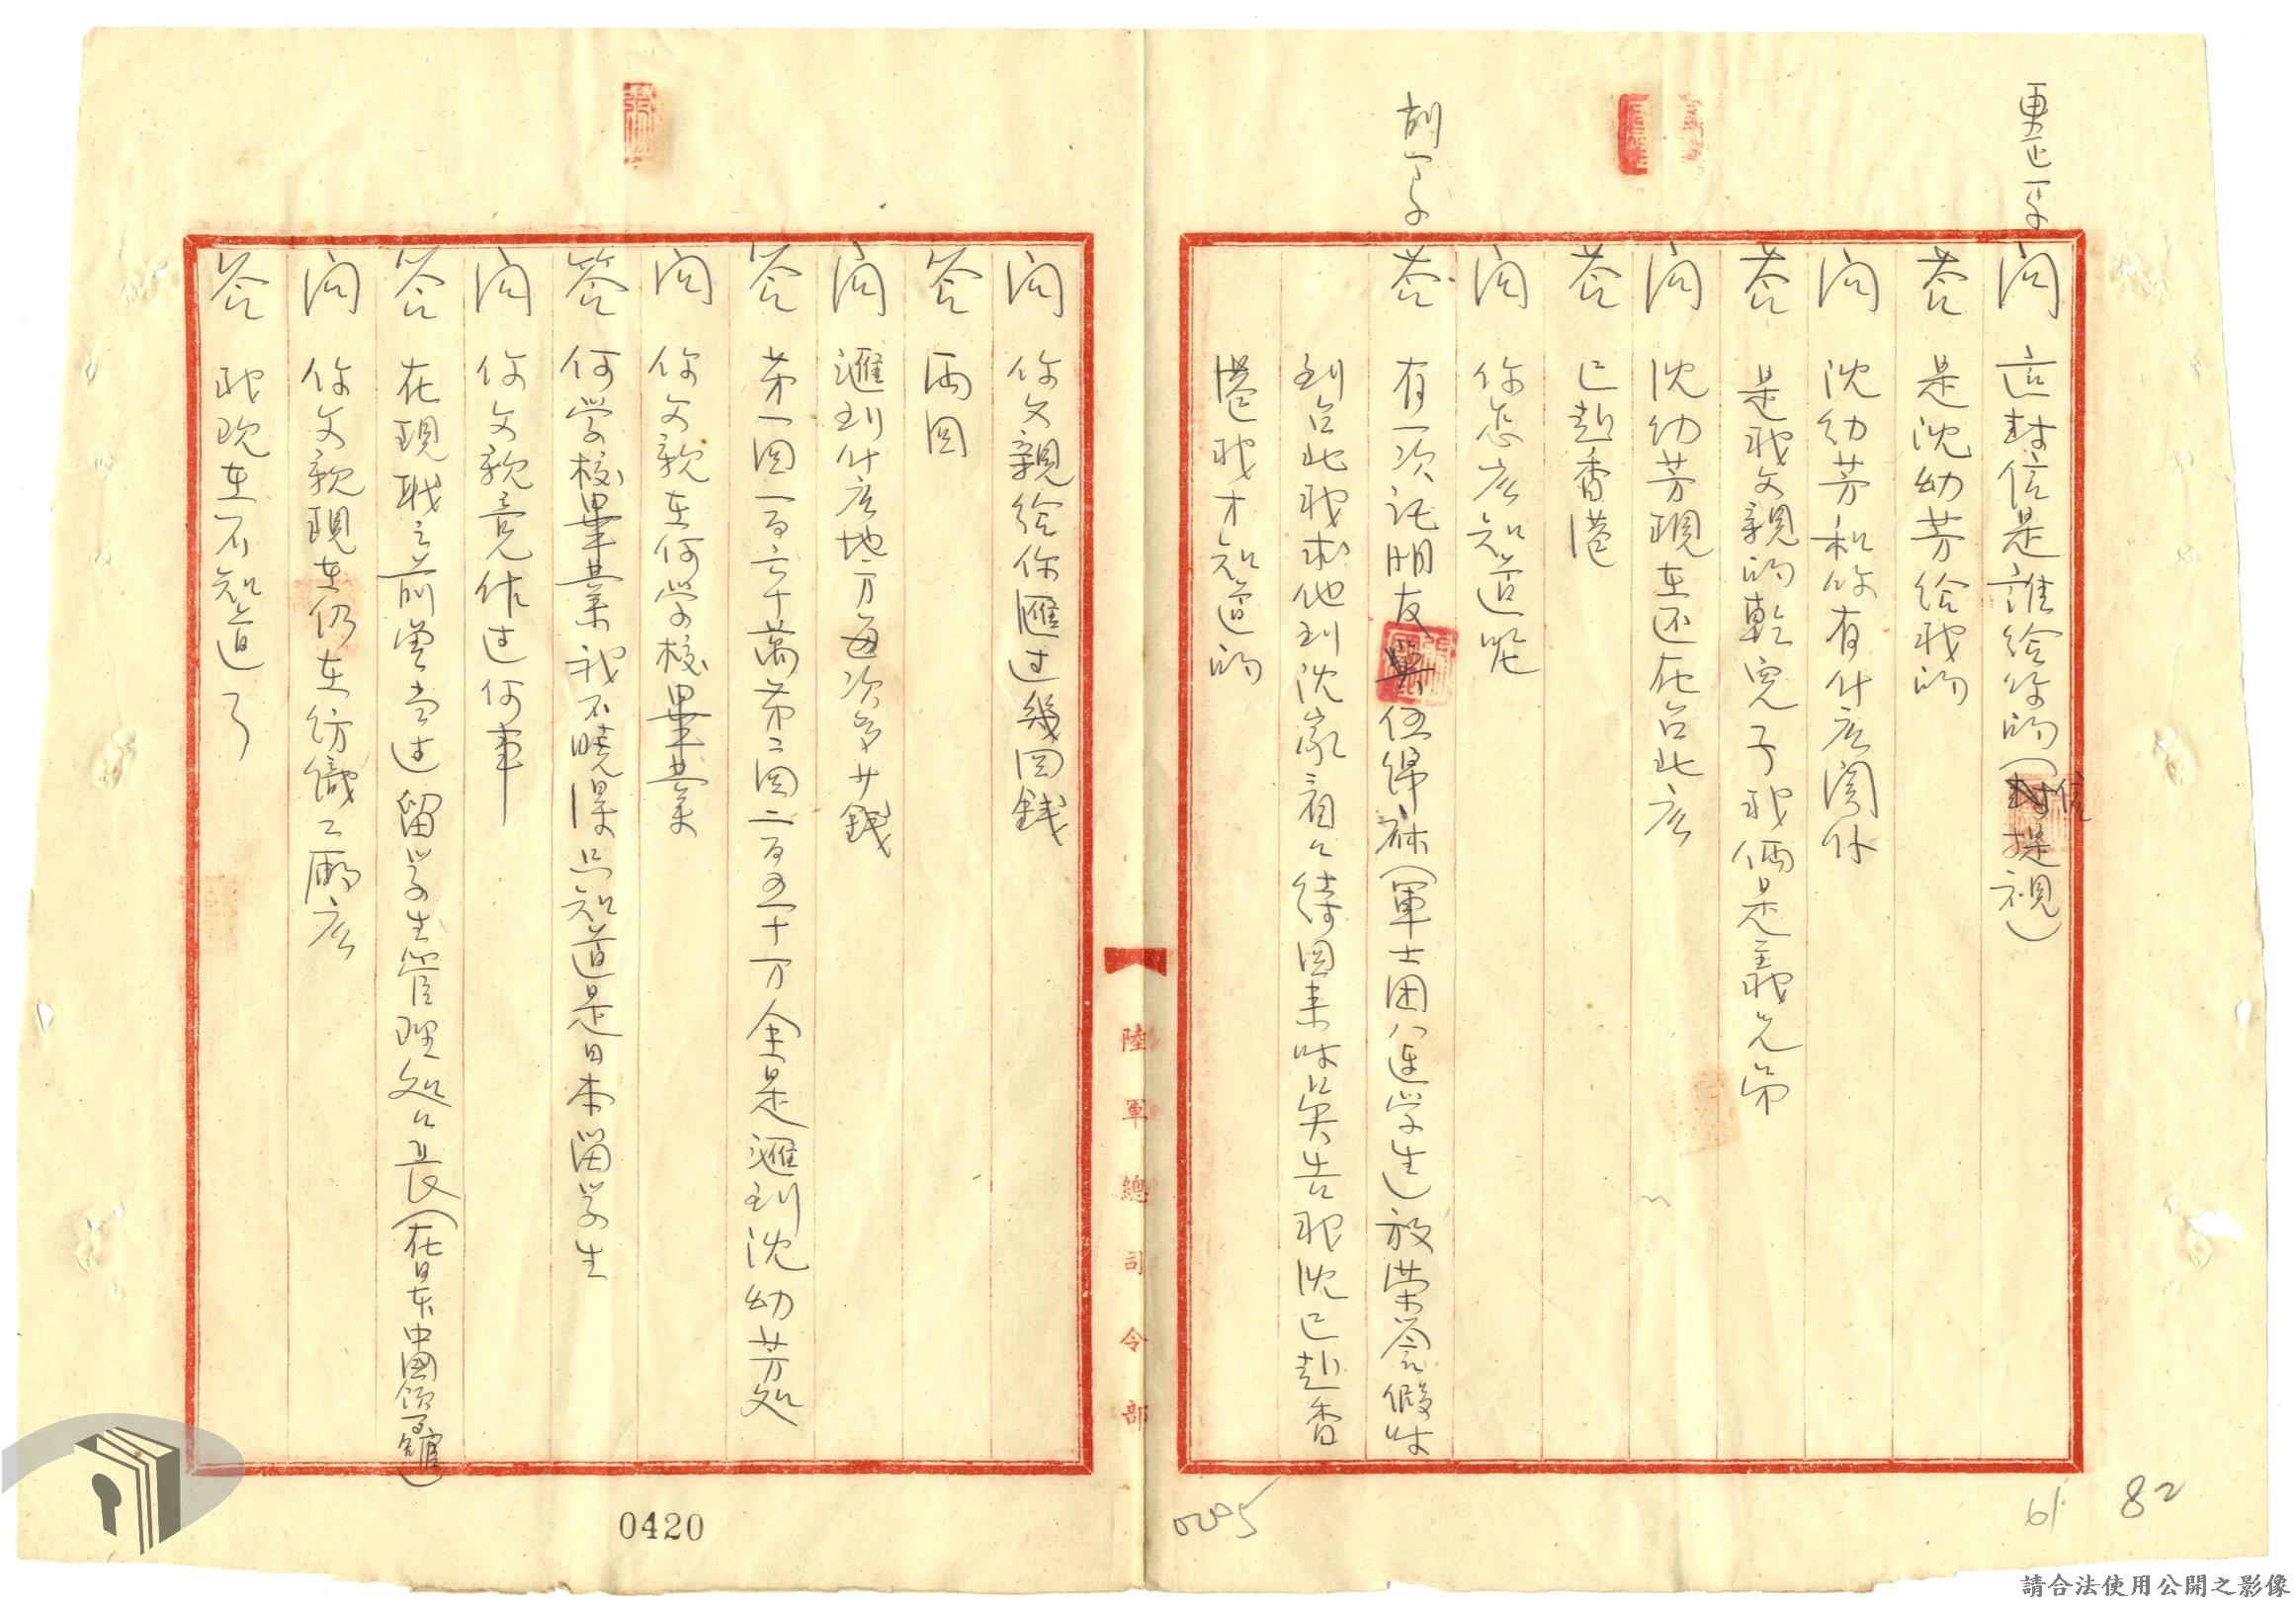 更正一字
問 這封信是誰給你的（信提視）
答 是沈幼芳給我的
問 沈幼芳和你有什庅関係
答 是我父親的乾兒子我倆是主義兄弟
問 沈幼芳現在还在台北庅
答 已赴香港
問 你怎庅知道呢
刪一字
答 有一次託朋友伍錦麻（軍士団八連学生）放榮譽假時
到台北我求他到沈家看看待囬來時吳告我沈已赴香
港我才知道的
陸軍總司令部
問 你父親給你匯过幾囬錢
答 両囬
問 滙到什庅地方每次多少錢
答 第一囬一百六十萬第二囬二百五十万全是滙到沈幼芳処
問 你父親在何学校畢業
答 何学校畢業我不曉得只知道是日本留学生
問 你父親竟作过何事
答 在現職之前曾当过留学生管理処処長（在日本中國領事舘）
問 你父親現在仍在紡織工廠庅
答 我現在不知道了
0420
0205
61
82
請合法使用公開之影像